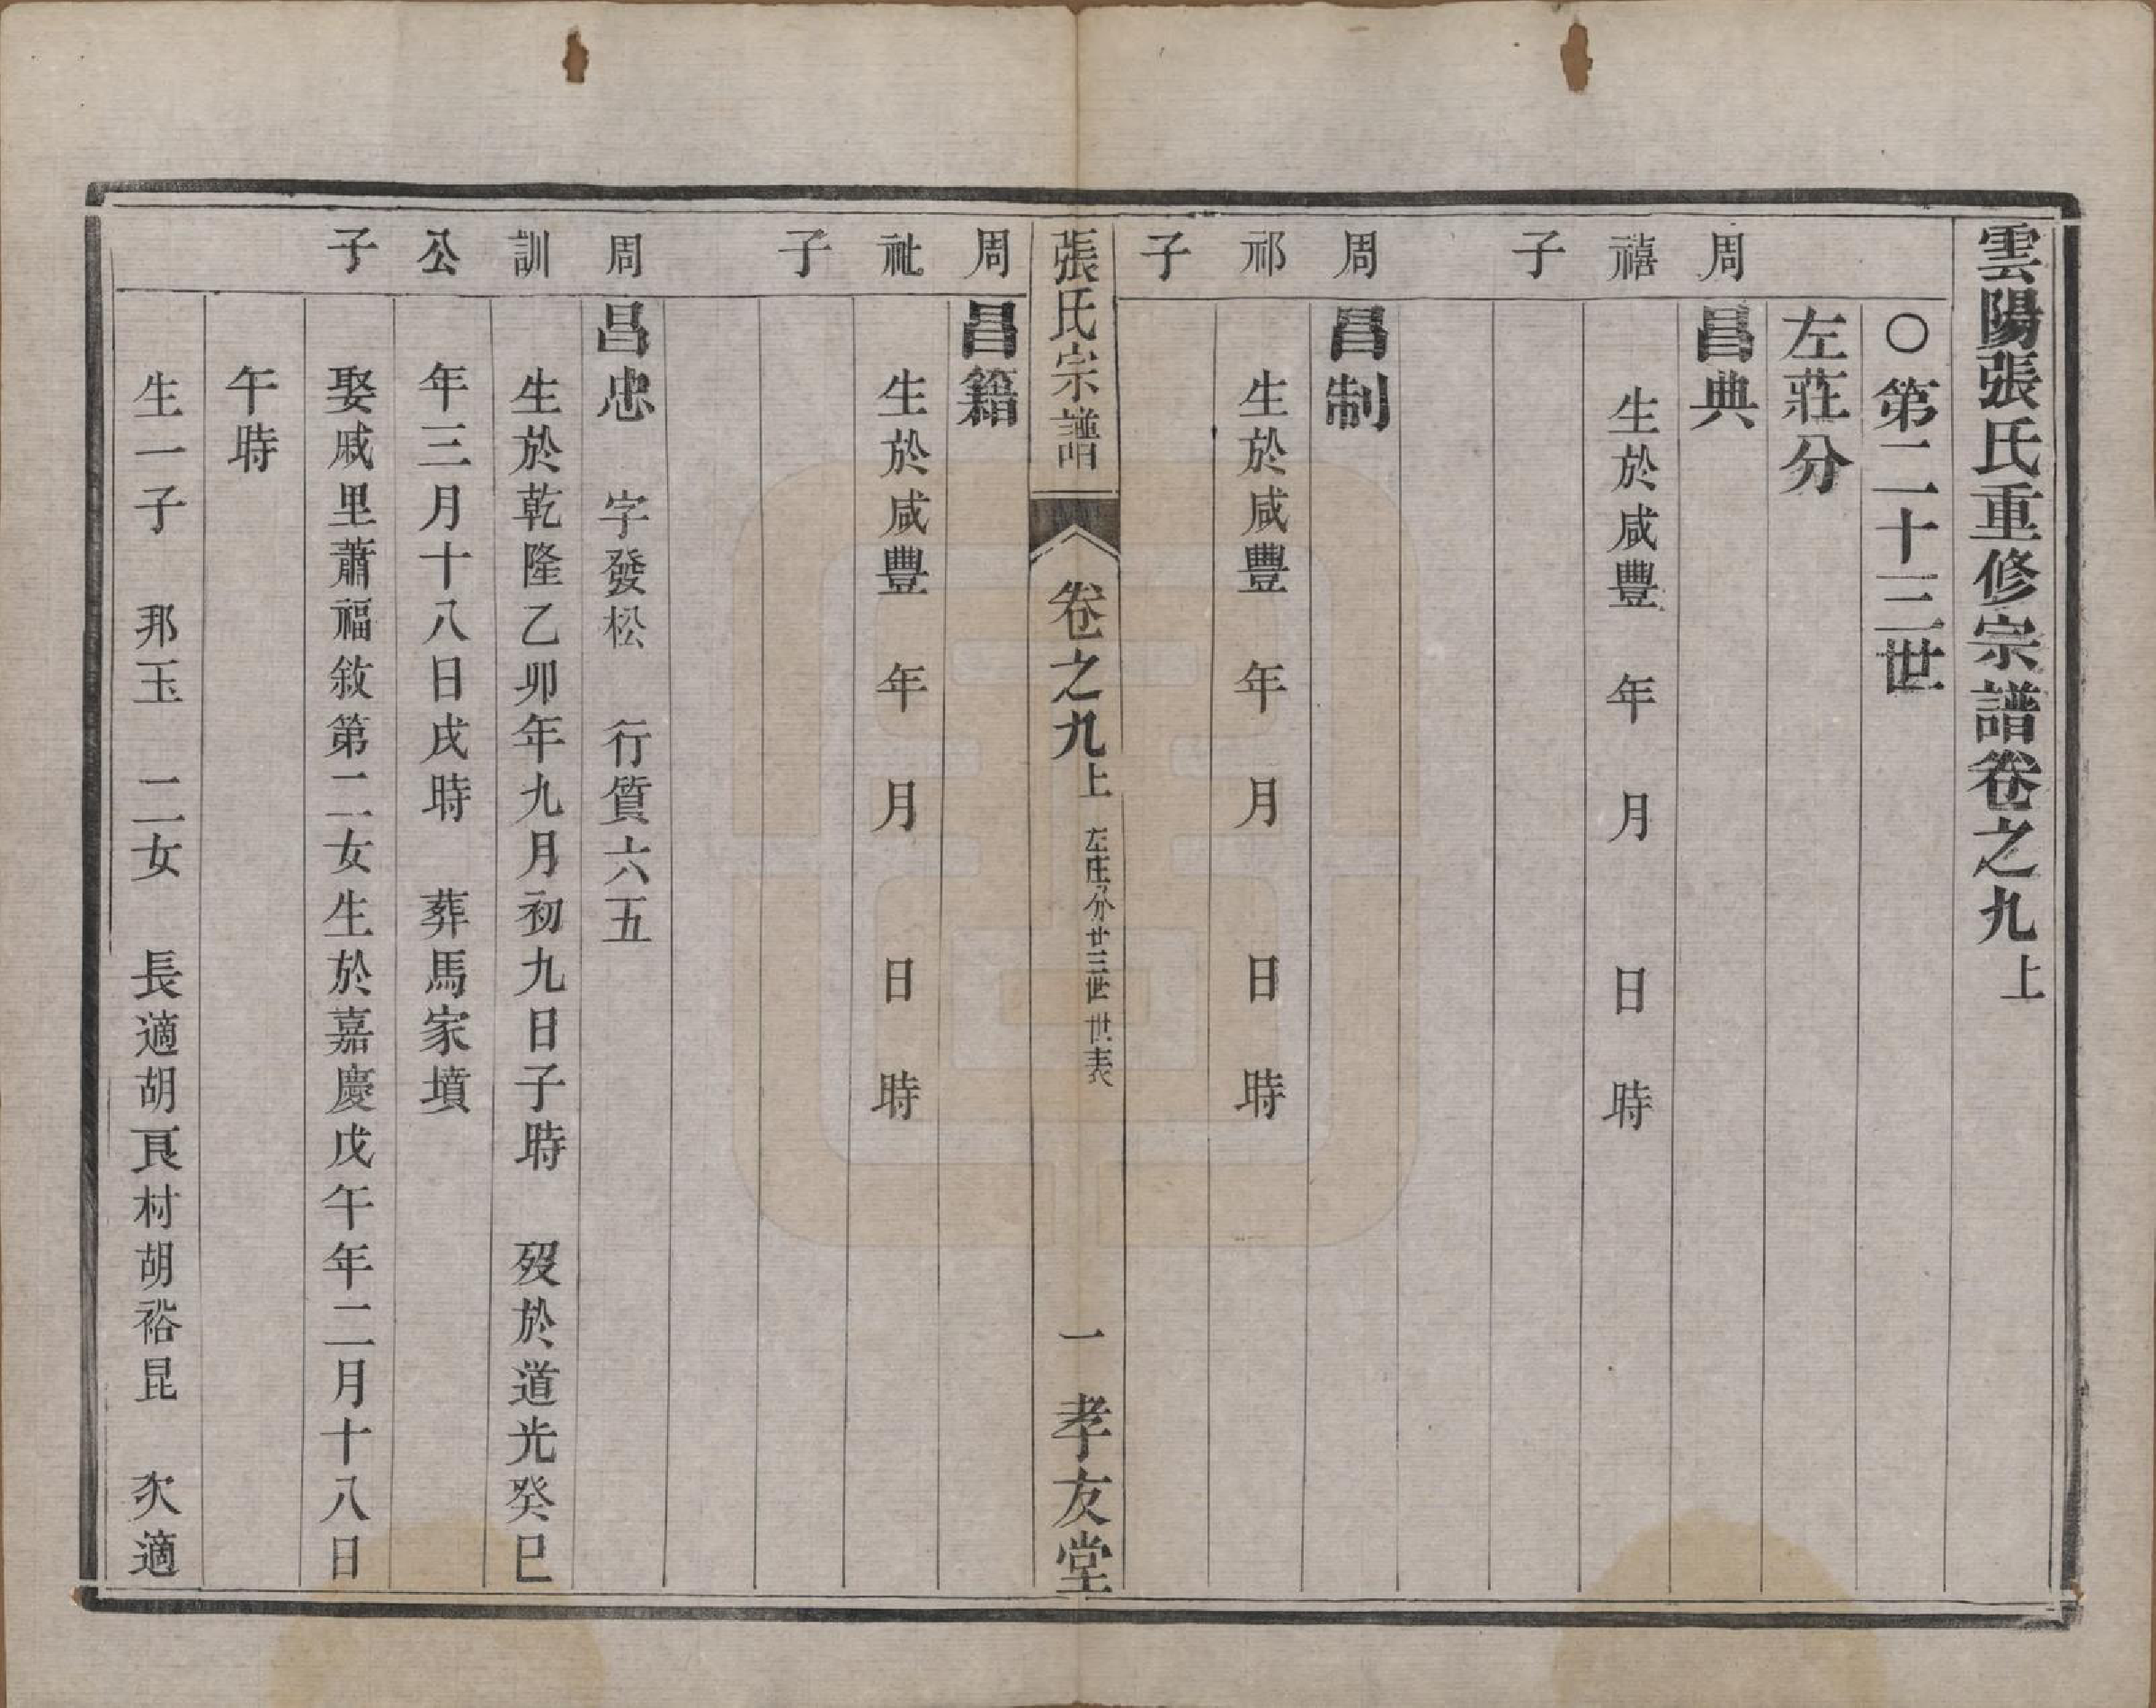 雲陽張氏重修宗譜卷之九上
○第二十三世
左莊分
周禧子
昌典
生於咸豐　年　月　日　時
周祁子
昌制
生於咸豐　年　月　日　時
張氏宗譜　卷之九上　左庄分廿三世　世表　一　孝友堂
周祉子
昌籍
生於咸豐　年　月　日　時
周訓公子
昌忠　字發松　行質六五
生於乾隆乙卯年九月初九日子時　歿於道光癸巳
年三月十八日戌時　葬馬家墳
娶戚里蕭福敘第二女生於嘉慶戊午年二月十八日
午時
生一子　邦玉　二女　長適胡頁村胡裕昆　次適